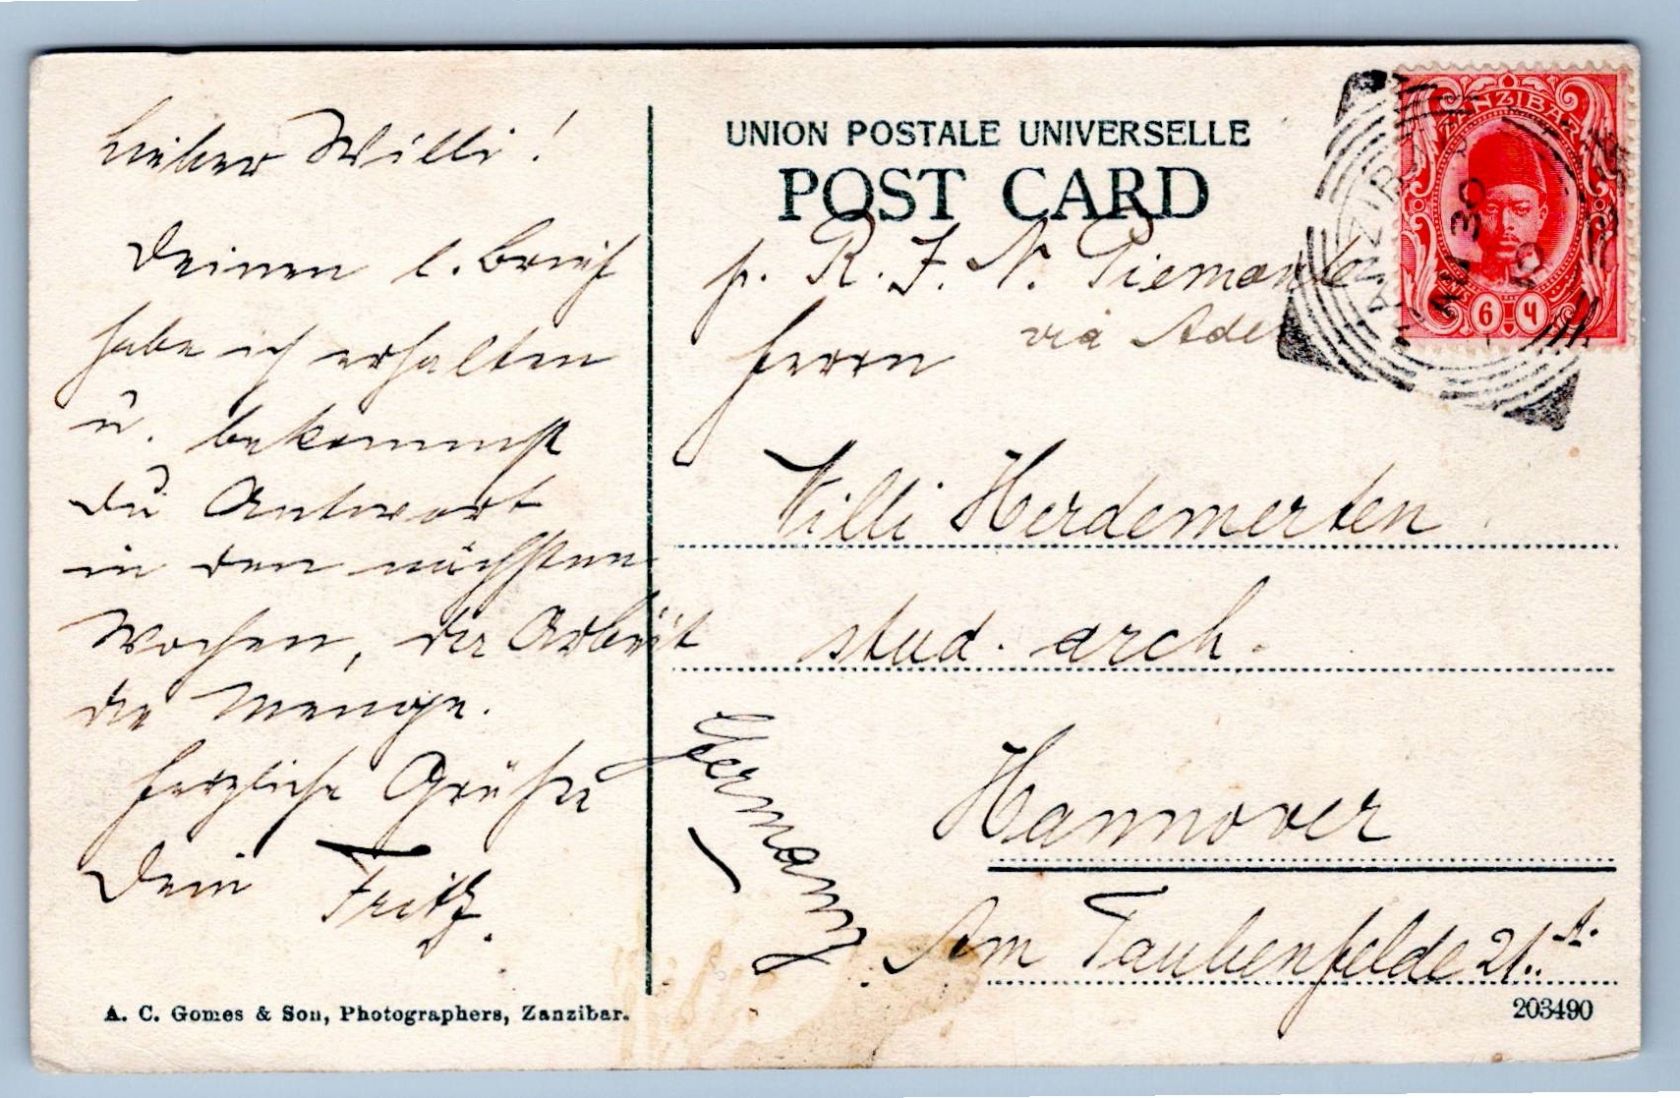 Lieber Willi!
Deinen l. Brief
habe ich erhalten
u. bekommst
Du Antwort
in den nächsten
Wochen, der Arbeit
die Menge.
Herzliche Grüße
Dein Fritz.
A. C. Gomes & Son, Photographers, Zanzibar.
UNION POSTALE UNIVERSELLE
POST CARD
p. R. F. N. Piemonte
via Ade
Herrn
Willi Herdemerten
stud. arch.
Hannover
Am Taubenfelde 21
Germany
203490
ZANZIBAR
6 6
ZANZIBAR
30